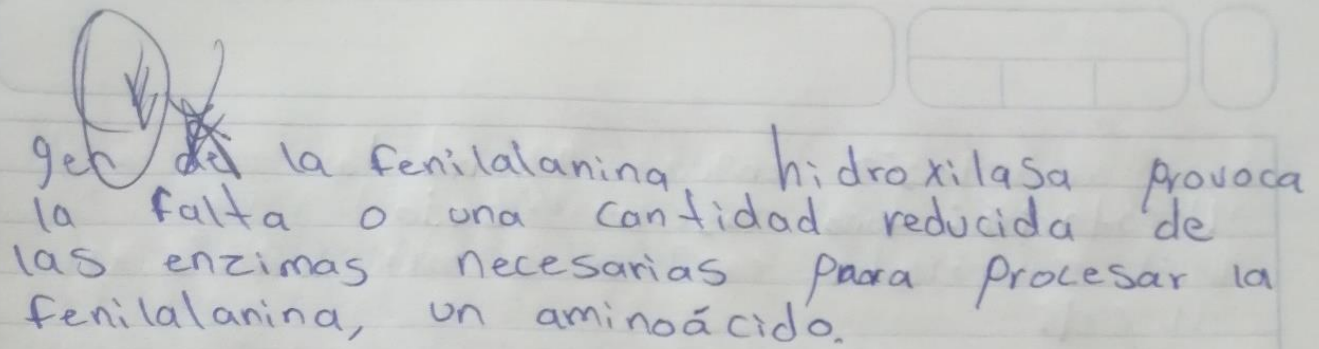 gen de la fenilalanina hidroxilasa provoca
la falta o una cantidad reducida de
las enzimas necesarias para procesar la
fenilalanina, un aminoácido.